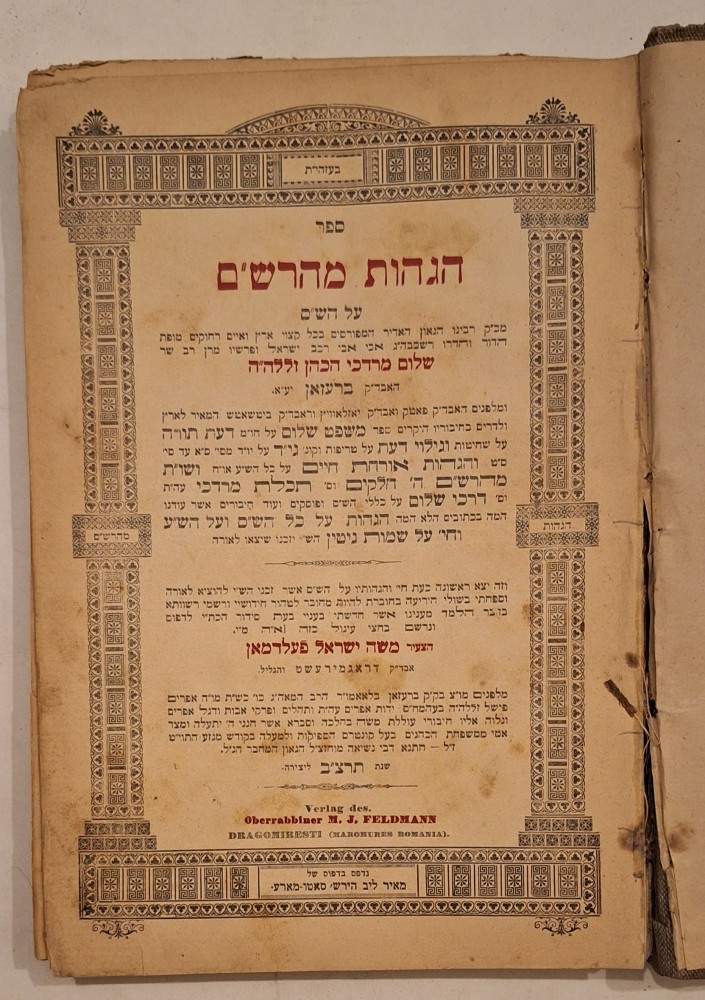 בעזהי״ת
ספר
הגהות מהרש״ם
על הש״ס
מכ״ק רבינו הגאון האדיר המפורסים בכל קצוי ארץ ואיים רחוקים מופת
הדור והדרו רשכבה״ג אבי אבי רכב ישראל ופרשיו מרן רב שר
שלום מרדכי הכהן זללה״ה
האבד״ק ברעזאן יע״א.
ומלפנים האבד״ק פאטק ואבד״ק יאזלאוויץ וראבד״ק ביטשאטש המאיר לארץ
ולדרים בחיבוריו היקרים ספר משפט שלום על חו״מ דעת תורה
על שחיטות וגילוי דעת על טריפות וקונ׳ גי״ד על יו״ד מסי׳ ס״א עד סי׳
ס״ט והגהות אורחת חיים על כל הש״ע או״ח ושו״ת
מהרש״ם ה׳ חלקים וס׳ תכלת מרדכי עה״ת
וס׳ דרכי שלום על כללי הש״ס ופוסקים ועוד חיבורים אשר עודנו
המה בכתובים הלא המה הגהות על כל הש״ס ועל הש״ע
וחי׳ על שמות גיטין הש״י יזכנו שיצאו לאורה
וזה יצא ראשונה כעת חי׳ והגהותיו על הש״ס אשר זכני הש״י להוציא לאורה
וספחתי בשולי היריעה בחוברת להיות מחובר לטהור חידושיי ורשמי רשוותא
כדבר הלמד מענינו אשר חדשתי בעניי בעת סידור הכת״י לדפוס
ונרשם בחצי עיגול כזה
הצעיר משה ישראל פעלדמאן
אבד״ק דראגמירעשט והגליל.
מלפנים מו״צ בק״ק ברעזאן בלאאמו״ר הרב המאה״ג כו׳ בש״ת מו״ה אפרים
פישל זללה״ה בעהמח״ס ידות אפרים עה״ת ותהלים ופרקי אבות ודגל אפרים
ונלוה אליו חיבורי עוללת משה בהלכה וסברא אשר חנני ה׳ יתעלה ומצד
אמי ממשפחת הכהנים בעל קונטרס הספיקות ולמעלה בקודש מגזע התוי״ט
ז״ל — חתנא דבי נשיאה מוחצ״ל הגאון המחבר הנ״ל.
שנת תרצ״ב ליצירה.
הגהות
מהרש״ם
Verlag des.
Oberrabbiner M. J. FELDMANN
DRAGOMIRESTI (MAROMURES ROMANIA).
נדפס בדפוס של
מאיר ליב הירש׳ סאטו-מארע·